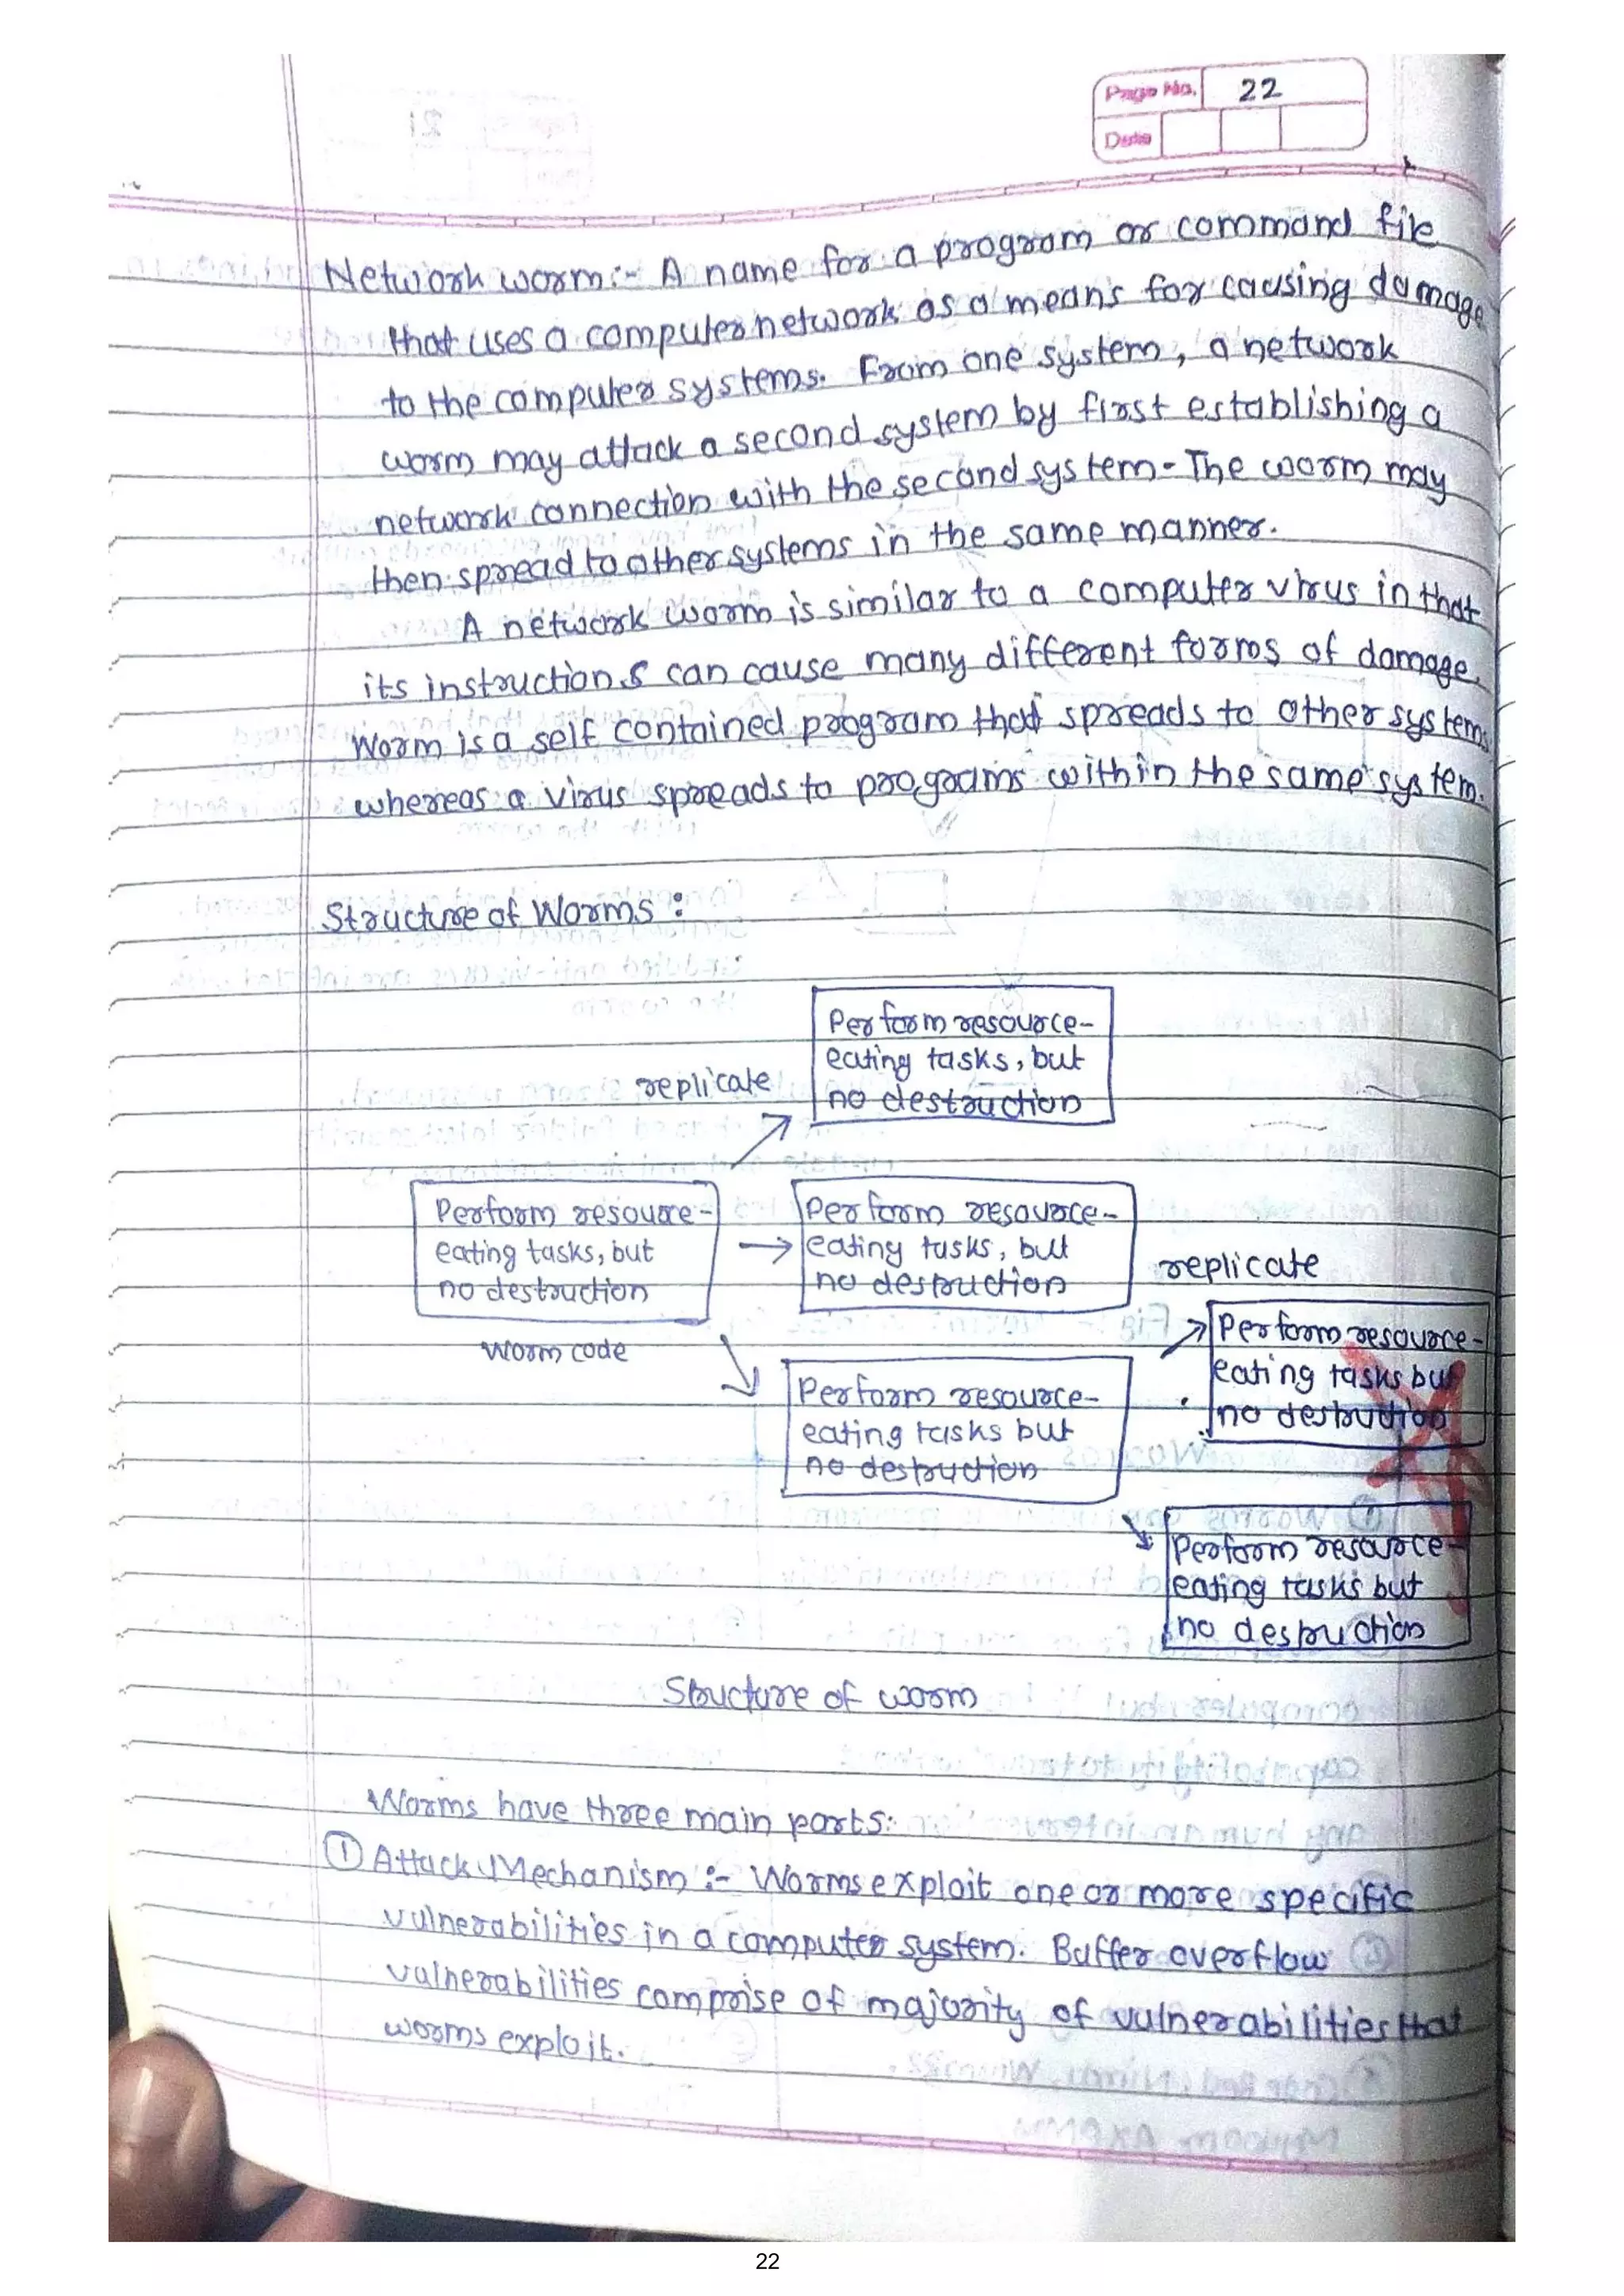 Page No. 22
Date
Network worm:- A name for a program or command file
that uses a computer network as a means for causing damage
to the computer systems. From one system, a network
worm may attack a second system by first establishing a
network connection with the second system. The worm may
then spread to other systems in the same manner.
A network worm is similar to a computer virus in that
its instructions can cause many different forms of damage.
Worm is a self contained program that spreads to other systems
whereas a virus spreads to programs within the same system.
Structure of Worms :
Perform resource-
eating tasks, but
no destruction
replicate
Perform resoure-
eating tasks, but
no destruction
worm code
Perform resource-
eating tasks, but
no destruction
replicate
Perform resource-
eating tasks but
no destruction
Perform resource-
eating tasks but
no destruction
Perform resource-
eating tasks but
no destruction
Structure of worm
Worms have three main parts:
① Attack Mechanism :- Worms exploit one or more specific
vulnerabilities in a computer system. Buffer overflow
vulnerabilities comprise of majority of vulnerabilities that
worms exploit.
22